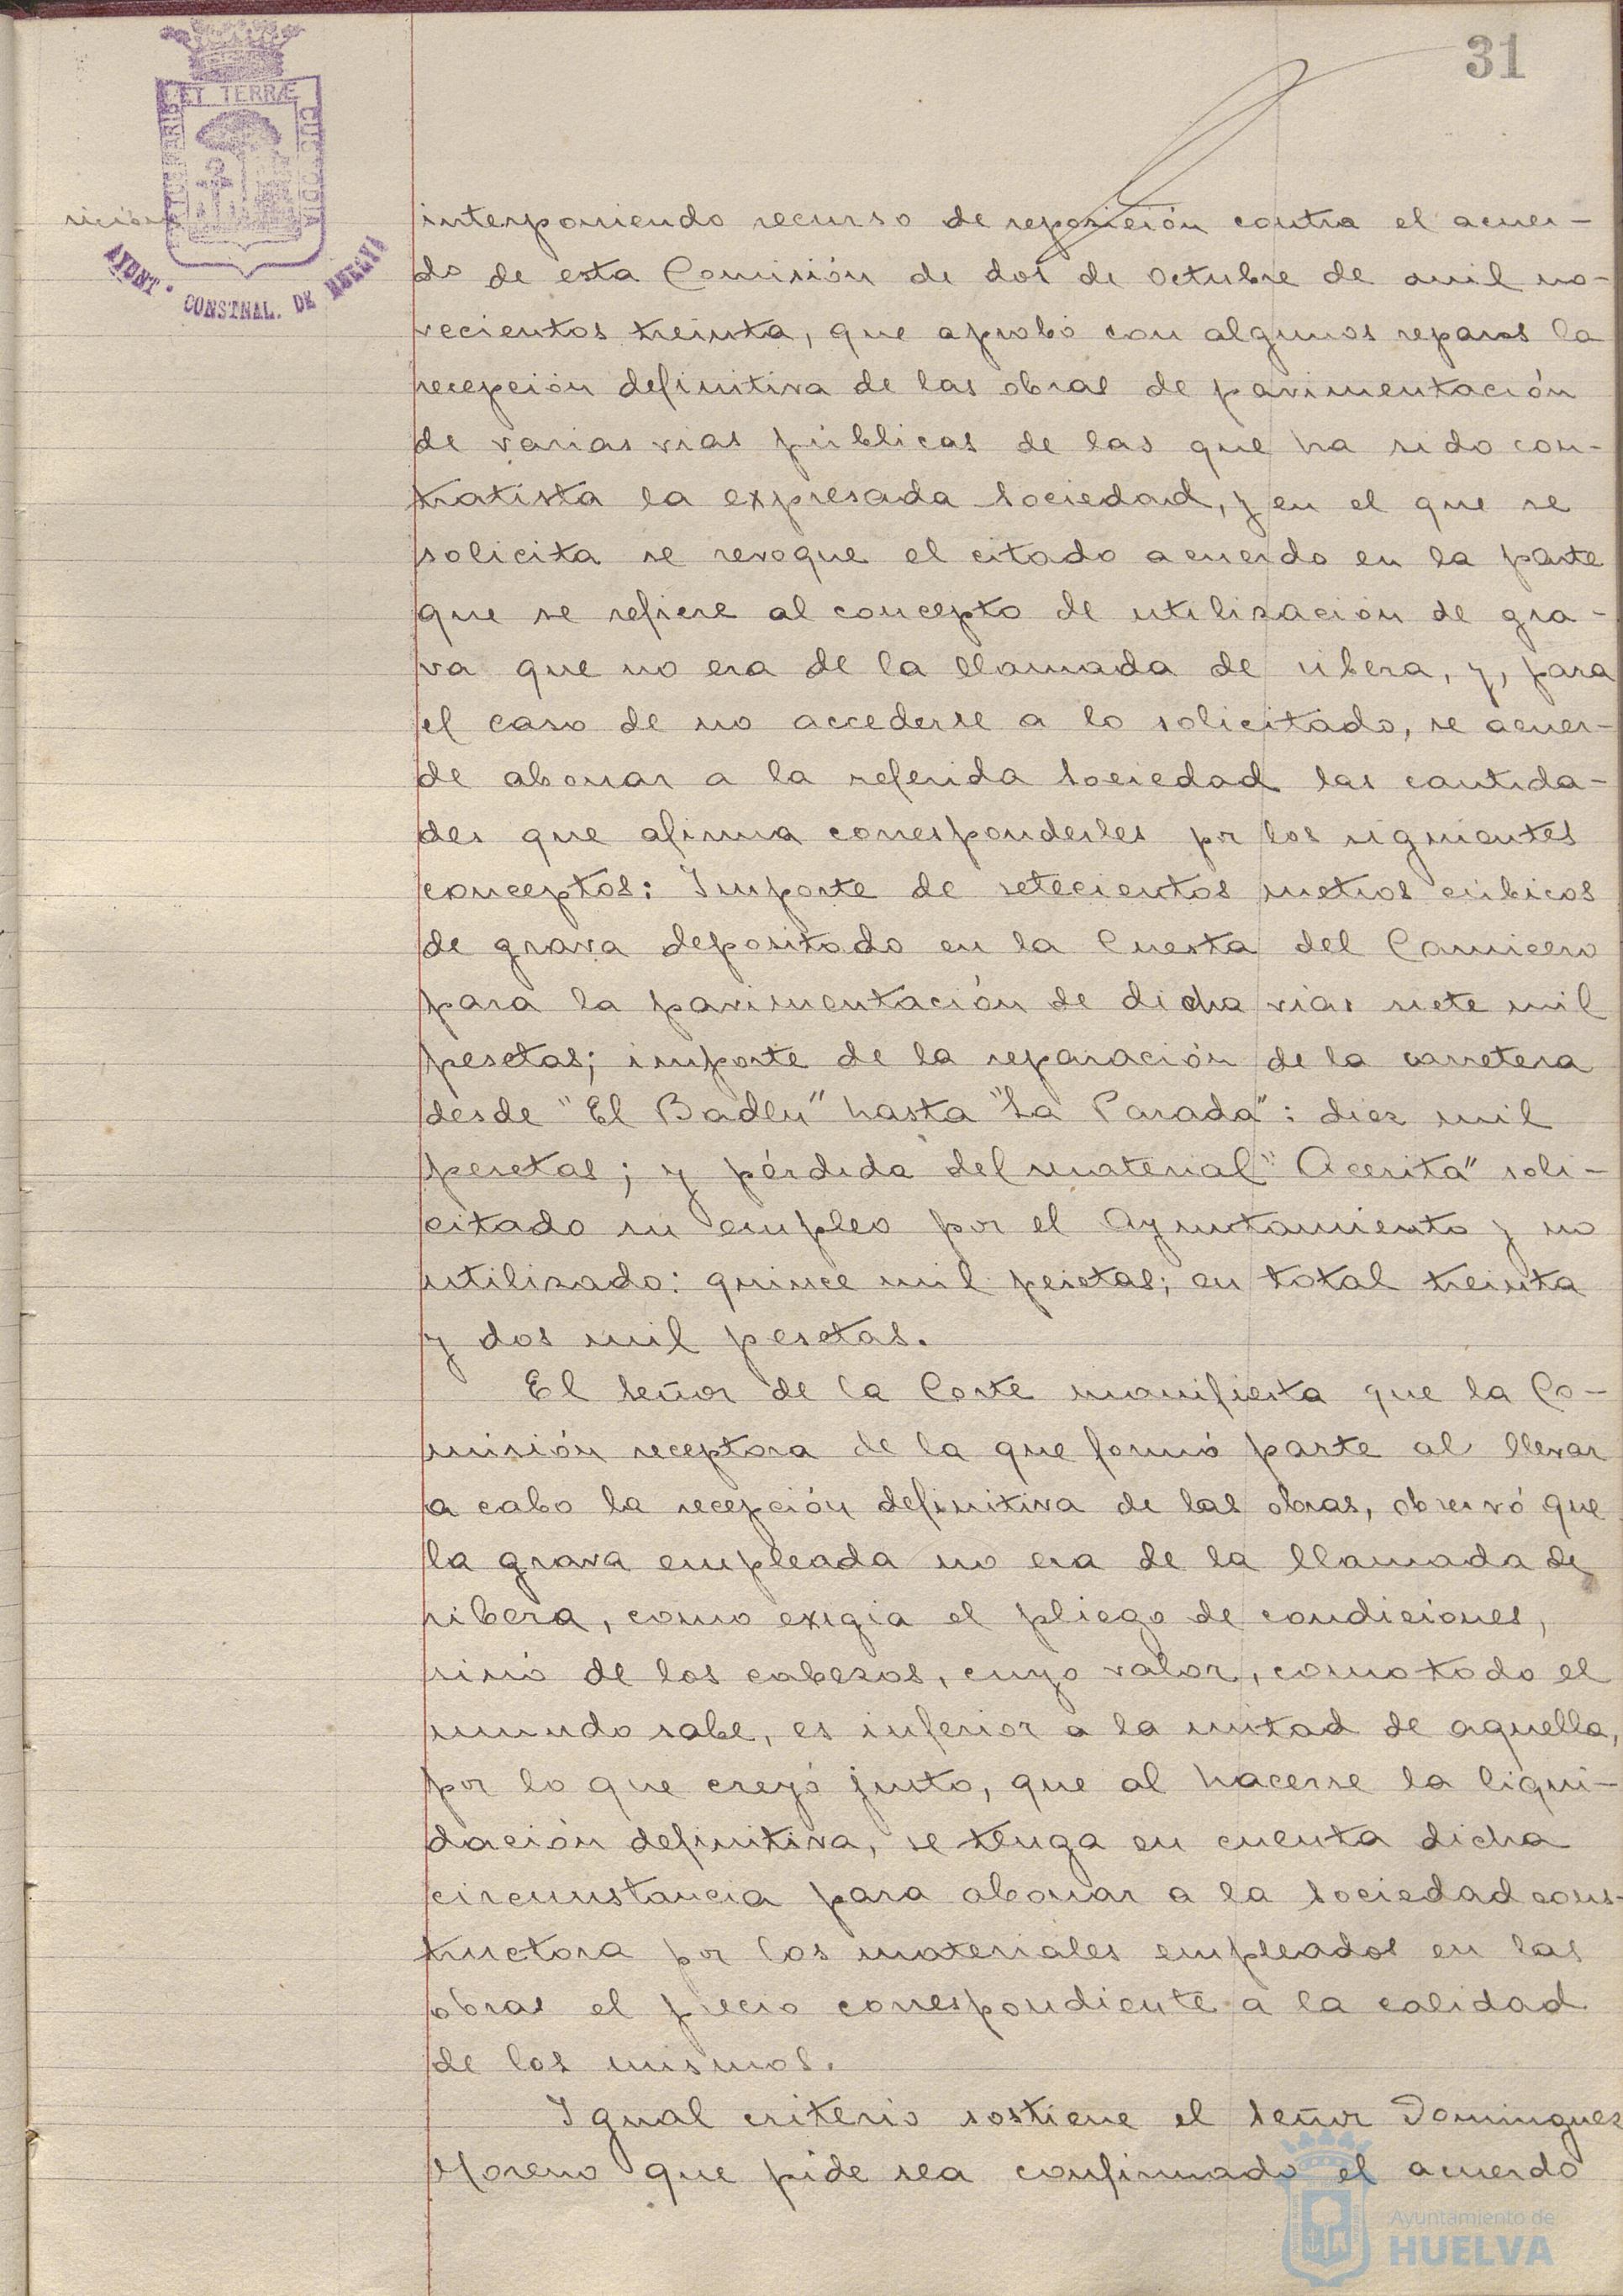 31
ET TERRÆ
AYUNT. CONSTNAL. DE HUELVA
interponiendo recurso de reposición contra el acuer-
do de esta Comisión de dos de Octubre de mil no-
vecientos treinta, que aprobó con algunos reparos la
recepción definitiva de las obras de pavimentación
de varias vias públicas de las que ha sido con-
tratista la expresada Sociedad, y en el que se
solicita se revoque el citado acuerdo en la parte
que se refiere al concepto de utilización de gra-
va que no era de la llamada de ribera, y, para
el caso de no accederse a lo solicitado, se acuer-
de abonar a la referida Sociedad las cantida-
des que afirma corresponderles por los siguientes
conceptos: Importe de setecientos metros cúbicos
de grava depositado en la Cuesta del Carnicero
para la pavimentación de dicha vias siete mil
pesetas; importe de la reparación de la carretera
desde "El Baden" hasta "La Parada": diez mil
pesetas; y pérdida del material "Acerita" soli-
citado su empleo por el Ayuntamiento y no
utilizado: quince mil pesetas; en total treinta
y dos mil pesetas.
El Señor de la Corte manifiesta que la Co-
misión receptora de la que formó parte al llevar
a cabo la recepción definitiva de las obras, observó que
la grava empleada no era de la llamada de
ribera, como exigia el pliego de condiciones,
sinó de los cabezos, cuyo valor, como todo el
mundo sabe, es inferior a la mitad de aquella,
por lo que creyó justo, que al hacerse la liqui-
dación definitiva, se tenga en cuenta dicha
circunstancia para abonar a la Sociedad cons-
tructora por los materiales empleados en las
obras el precio correspondiente a la calidad
de los mismos.
Igual criterio sostiene el Señor Dominguez
Moreno que pide sea confirmado el acuerdo
Ayuntamiento de
HUELVA